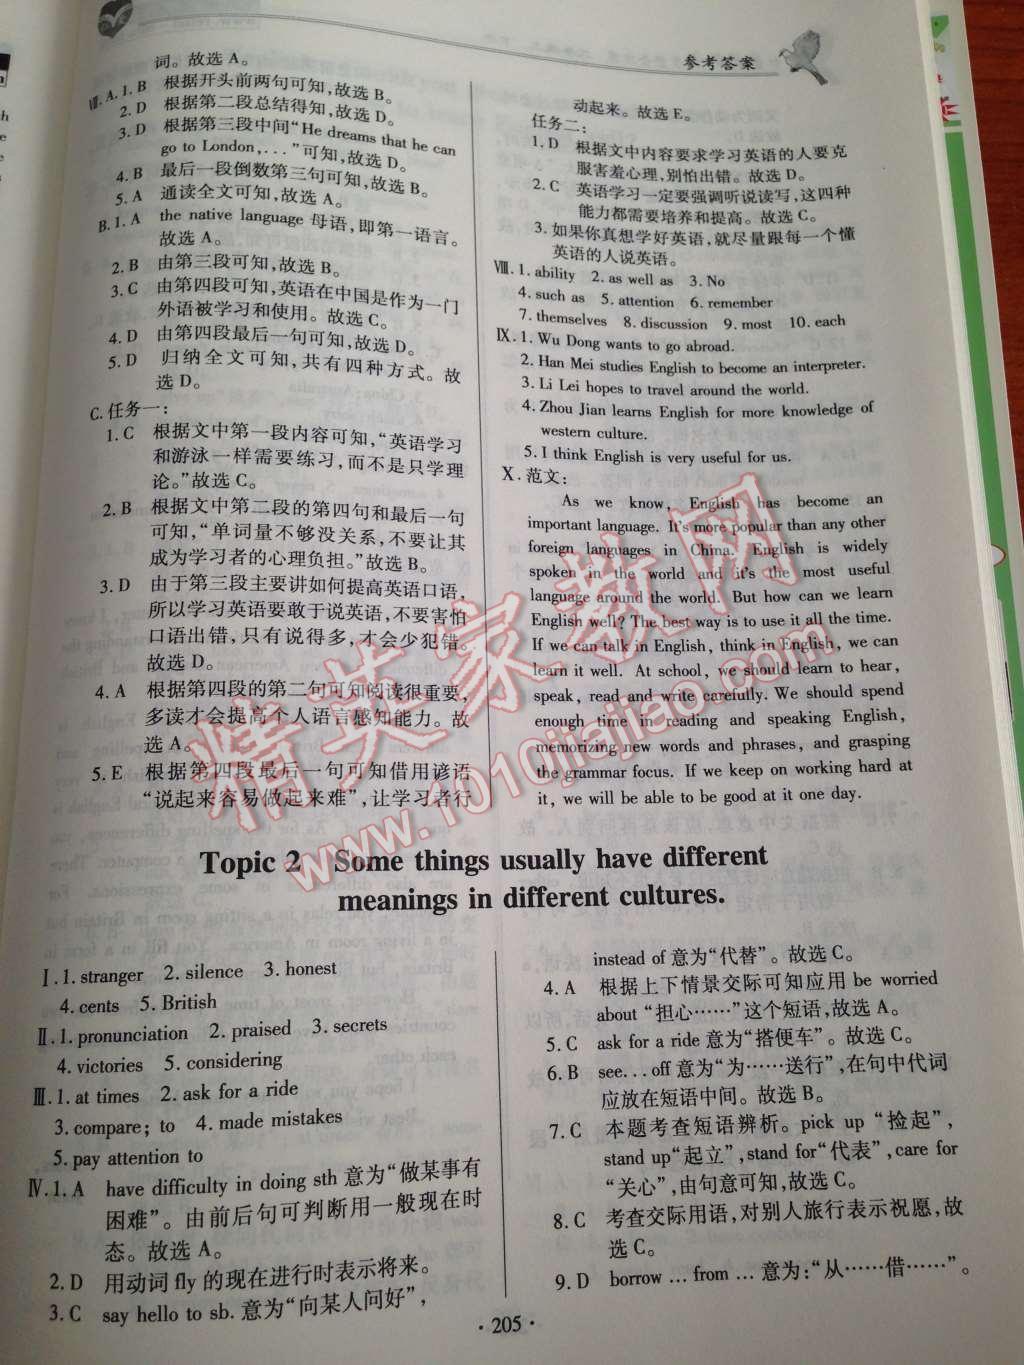 参考答案
词。故选A。
Ⅶ. A. 1. B 根据开头前两句可知,故选B。
2. D 根据第二段总结得知,故选D。
3. D 根据第三段中间“He dreams that he can
go to London, . . . ”可知,故选D。
4. B 最后一段倒数第三句可知,故选B。
5. A 通读全文可知,故选A。
B. 1. A the native language 母语,即第一语言。
故选A。
2. B 由第三段可知,故选B。
3. C 由第四段可知,英语在中国是作为一门
外语被学习和使用。故选C。
4. D 由第四段最后一句可知,故选D。
5. D 归纳全文可知,共有四种方式。故
选D。
C. 任务一:
1. C 根据文中第一段内容可知,“英语学习
和游泳一样需要练习,而不是只学理
论。”故选C。
2. B 根据文中第二段的第四句和最后一句
可知,“单词量不够没关系,不要让其
成为学习者的心理负担。”故选B。
3. D 由于第三段主要讲如何提高英语口语,
所以学习英语要敢于说英语,不要害怕
口语出错,只有说得多,才会少犯错。
故选D。
4. A 根据第四段的第二句可知阅读很重要,
多读才会提高个人语言感知能力。故
选A。
5. E 根据第四段最后一句可知借用谚语
“说起来容易做起来难”,让学习者行
动起来。故选E。
任务二:
1. D 根据文中内容要求学习英语的人要克
服害羞心理,别怕出错。故选D。
2. C 英语学习一定要强调听说读写,这四种
能力都需要培养和提高。故选C。
3. 如果你真想学好英语,就尽量跟每一个懂
英语的人说英语。
Ⅷ. 1. ability 2. as well as 3. No
4. such as 5. attention 6. remember
7. themselves 8. discussion 9. most 10. each
Ⅸ. 1. Wu Dong wants to go abroad.
2. Han Mei studies English to become an interpreter.
3. Li Lei hopes to travel around the world.
4. Zhou Jian learns English for more knowledge of
western culture.
5. I think English is very useful for us.
Ⅹ. 范文:
As we know, English has become an
important language. It's more popular than any other
foreign languages in China. English is widely
spoken in the world and it's the most useful
language around the world. But how can we learn
English well? The best way is to use it all the time.
If we can talk in English, think in English, we can
learn it well. At school, we should learn to hear,
speak, read and write carefully. We should spend
enough time in reading and speaking English,
memorizing new words and phrases, and grasping
the grammar focus. If we keep on working hard at
it, we will be able to be good at it one day.
精英家教网
www.1010jiajiao.com
Topic 2 Some things usually have different
meanings in different cultures.
Ⅰ. 1. stranger 2. silence 3. honest
4. cents 5. British
Ⅱ. 1. pronunciation 2. praised 3. secrets
4. victories 5. considering
Ⅲ. 1. at times 2. ask for a ride
3. compare; to 4. made mistakes
5. pay attention to
Ⅳ. 1. A have difficulty in doing sth 意为“做某事有
困难”。由前后句可判断用一般现在时
态。故选A。
2. D 用动词 fly 的现在进行时表示将来。
3. C say hello to sb. 意为“向某人问好”,
instead of 意为“代替”。故选C。
4. A 根据上下情景交际可知应用 be worried
about “担心……”这个短语,故选A。
5. C ask for a ride 意为“搭便车”。故选C。
6. B see. . . off 意为“为……送行”,在句中代词
应放在短语中间。故选B。
7. C 本题考查短语辨析。pick up “捡起”,
stand up“起立”, stand for“代表”, care for
“关心”,由句意可知,故选C。
8. C 考查交际用语,对别人旅行表示祝愿,故
选C。
9. D borrow … from … 意为:“从……借……”。
· 205 ·